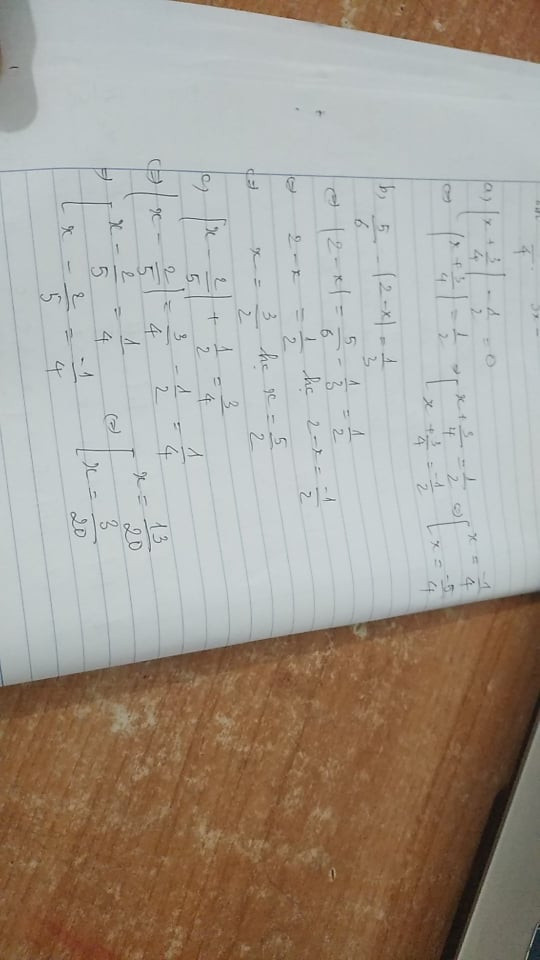 a) |x + 3/4| - 1/2 = 0
⇔ |x + 3/4| = 1/2 ⇔ [ x + 3/4 = 1/2 ⇔ [ x = -1/4
[ x + 3/4 = -1/2 [ x = -5/4
b) 5/6 - |2 - x| = 1/3
⇔ |2 - x| = 5/6 - 1/3 = 1/2
⇔ 2 - x = 1/2 hc 2 - x = -1/2
⇔ x = 3/2 hc x = 5/2
c) |x - 2/5| + 1/2 = 3/4
⇔ |x - 2/5| = 3/4 - 1/2 = 1/4
⇔ [ x - 2/5 = 1/4 ⇔ [ x = 13/20
[ x - 2/5 = -1/4 [ x = 3/20